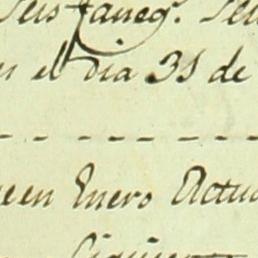 Seis faneg.s Sei
el dia 31 de
een Enero Actua
Siguien